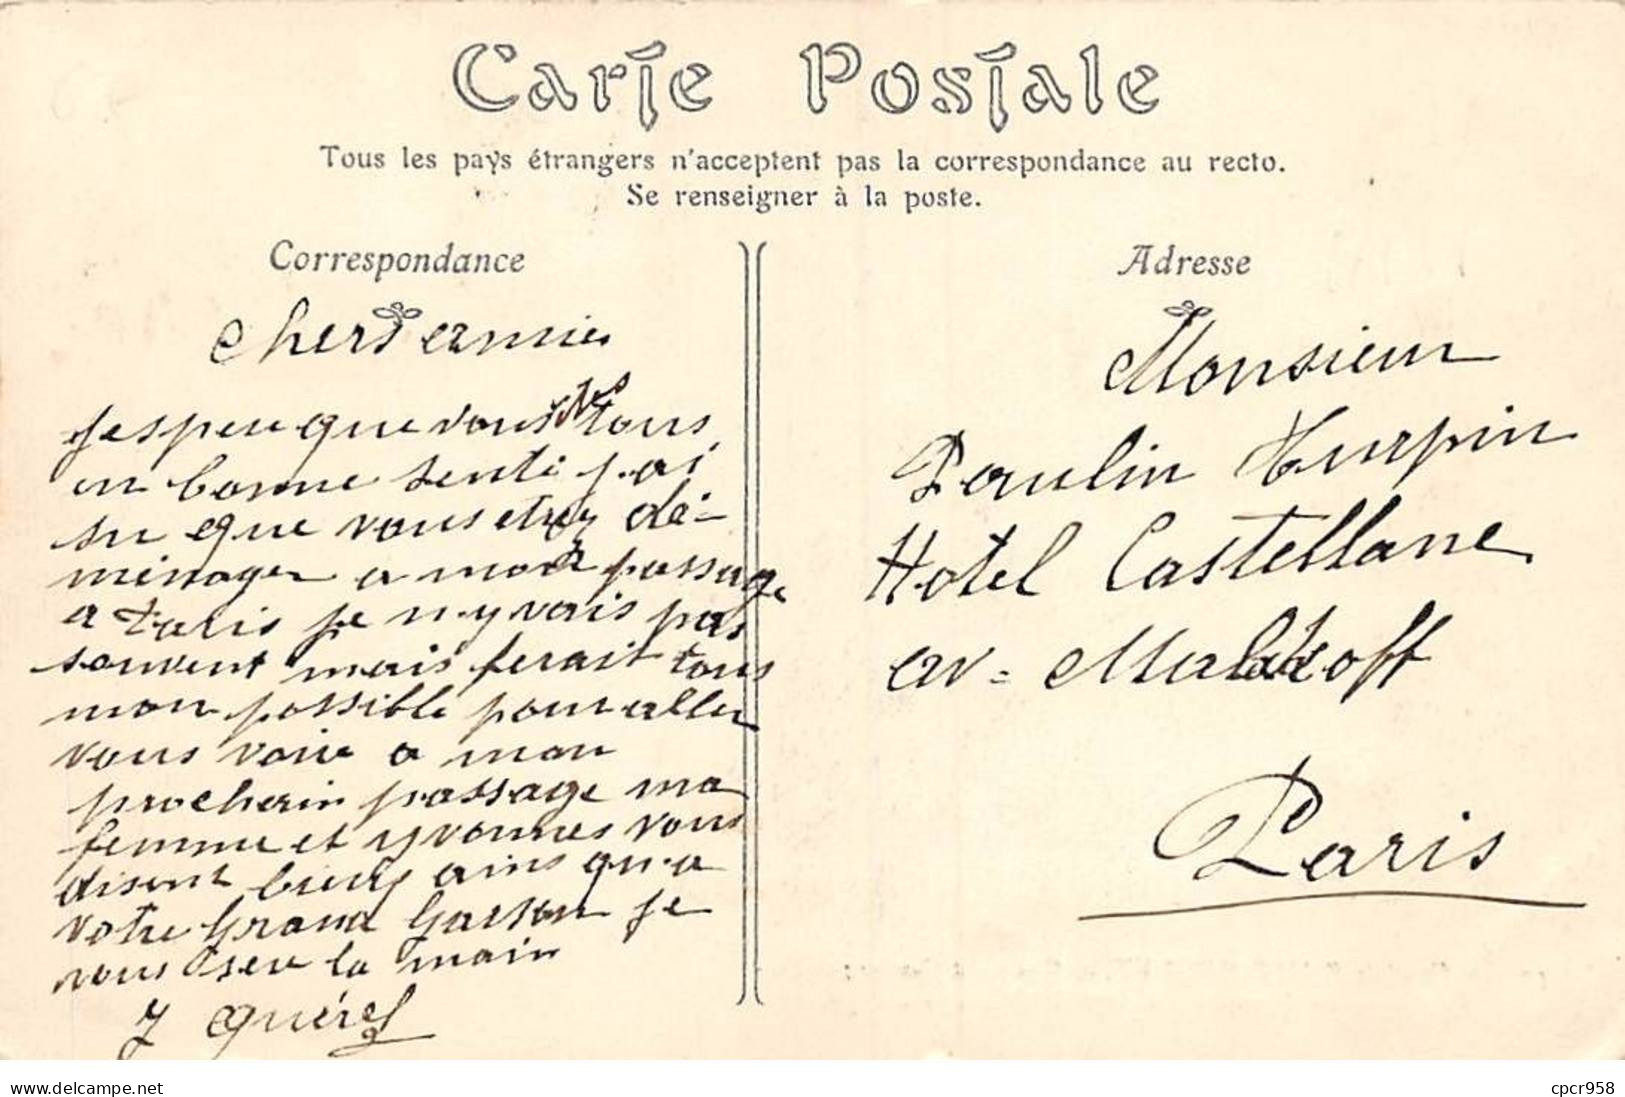 Carte Postale
Tous les pays étrangers n'acceptent pas la correspondance au recto.
Se renseigner à la poste.
Correspondance
Chers amies
Jesper que vous êtes tous
en bonne senté j.ai
su que vous etiez dé-
ménager a mon passage
a Paris je n.y vais pas
souvent mais ferait tous
mon possible pour aller
vous voir a mon
procherin passage ma
femme et yvonnes vous
disent bien ains qu.a
votre grand garson je
vous ser la main
J Quérel
Adresse
Monsieur
Paulin Turpin
Hotel Castellane
av = Malakoff
Paris
www.delcampe.net
cpcr958